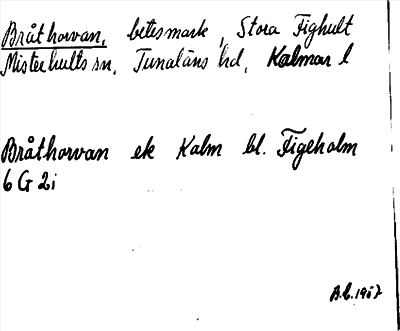 Bråthorvan, betesmark, Stora Fighult
Misterhults sn, Tunaläns hd, Kalmar l
Bråthorvan ek Kalm bl. Figeholm
6 G 2i